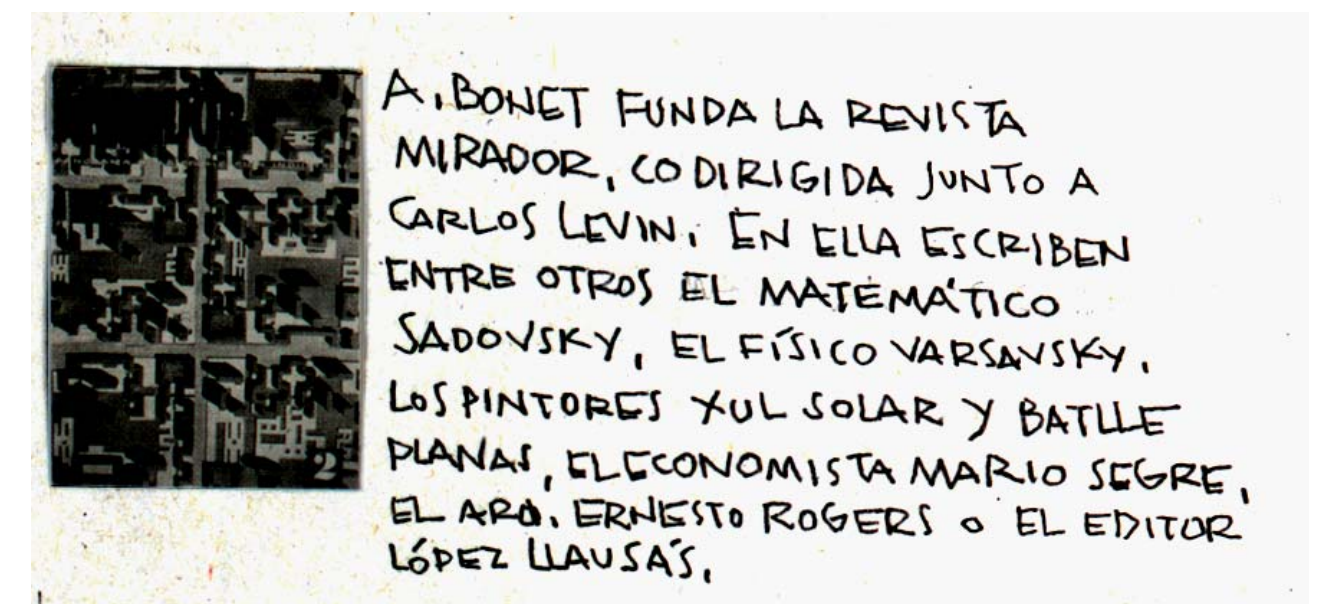 A. BONET FUNDA LA REVISTA
MIRADOR, CODIRIGIDA JUNTO A
CARLOS LEVIN. EN ELLA ESCRIBEN
ENTRE OTROS EL MATEMÁTICO
SADOVSKY, EL FÍSICO VARSAVSKY,
LOS PINTORES XUL SOLAR Y BATLLE
PLANAS, EL ECONOMISTA MARIO SEGRE,
EL ARQ. ERNESTO ROGERS O EL EDITOR
LÓPEZ LLAUSÁS.
2